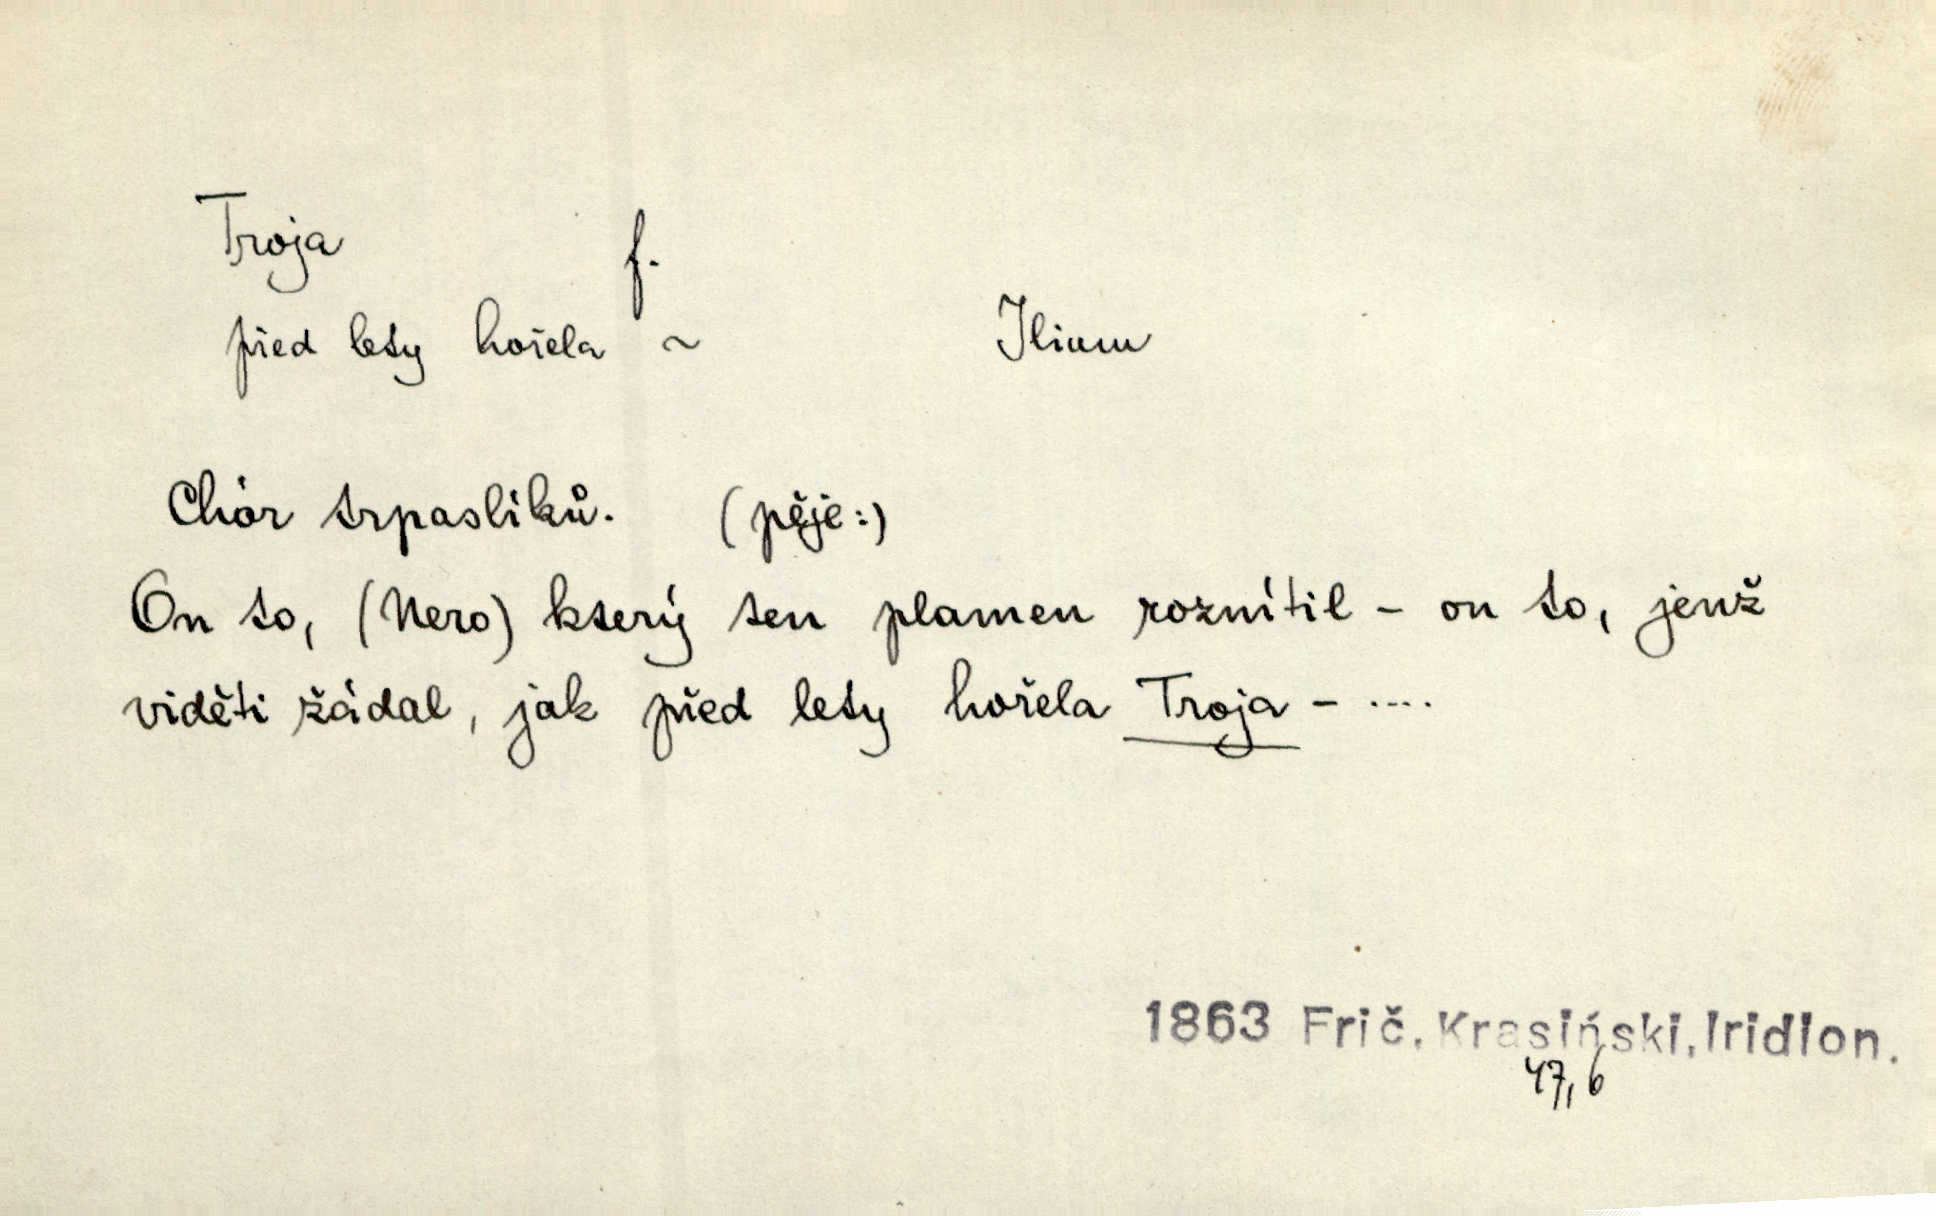 Troja f.
před lety hořela ~ Ilium
Chór trpaslíků. (pěje:)
On to, (Nero) který ten plamen roznítil - on to, jenž
viděti žádal, jak před lety hořela Troja - ....
1863 Frič, Krasiński, Iridion.
47,6